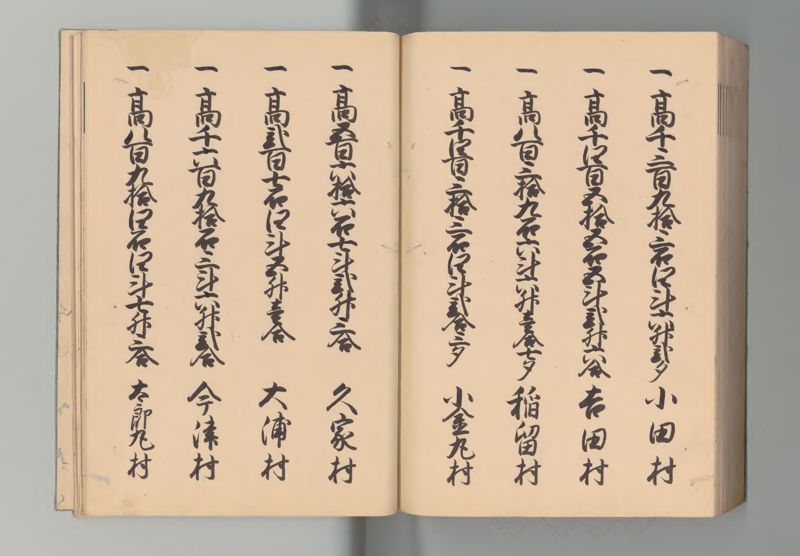 一 髙千三百九拾三石四斗六升弐夕 小田村
一 髙千四百五拾五石五斗弐升六合 吉田村
一 髙八百三拾九石六斗六升壱合七夕 稲留村
一 髙千四百三拾三石四斗弐合三夕 小金丸村
一 髙五百六拾六石七斗弐升三合 久家村
一 髙弐百七石四斗五升壱合 大浦村
一 髙千六百九拾石三斗六升弐合 今津村
一 髙八百九拾四石四斗七升三合 太郎丸村